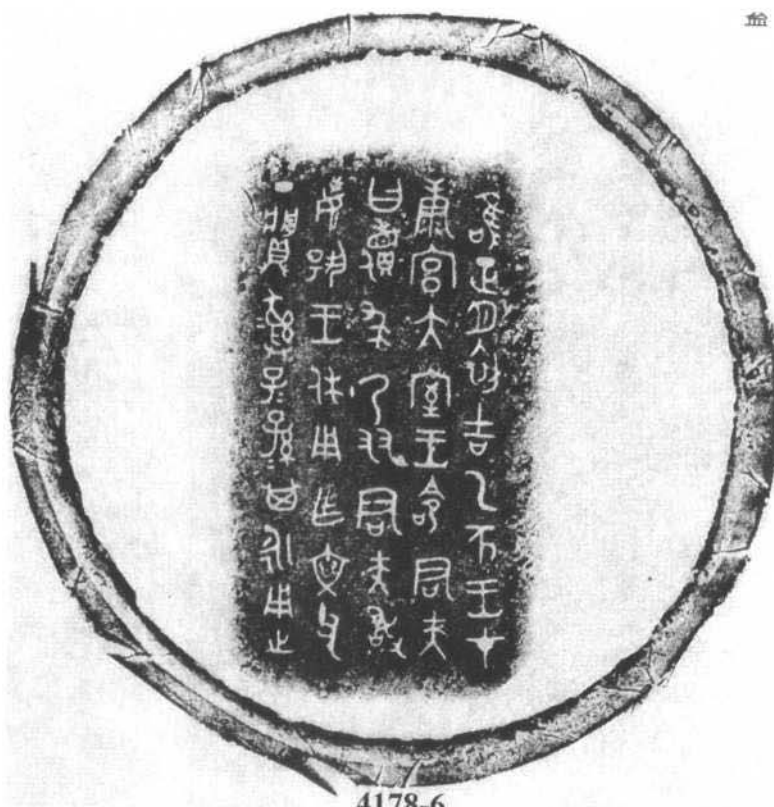 唯正月初吉乙亥王才
康宮大室王命君夫
曰儥求乃友君夫敢
揚王休用乍文父
丁䵼彝子＝孫＝其永用之
4178-6